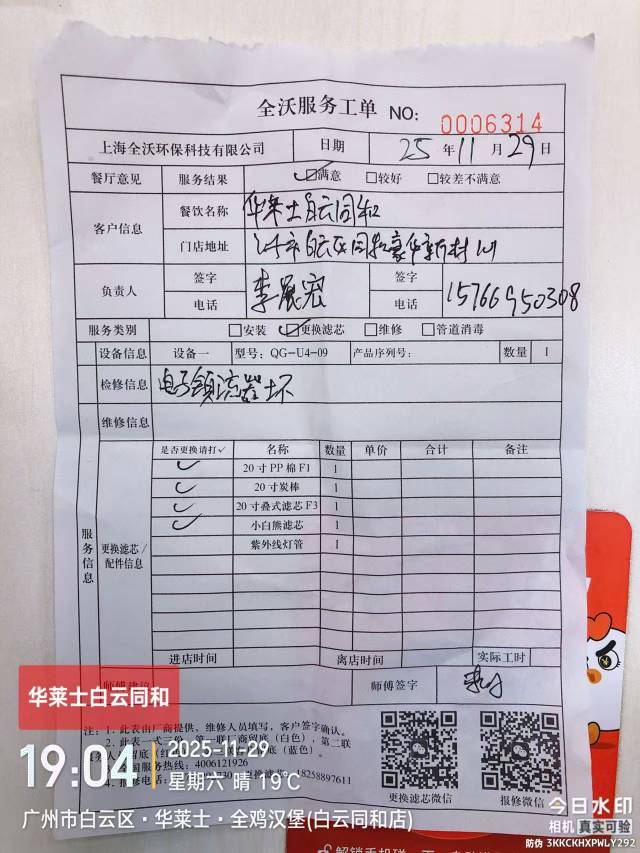 全沃服务工单 NO: 0006314
上海全沃环保科技有限公司 日期 25 年 11 月 29 日
餐厅意见 服务结果 ☑满意 □较好 □较差不满意
客户信息 餐饮名称 华莱士白云同和
门店地址
负责人 签字 李展宏 签字
电话 电话 15766950308
服务类别 □安装 ☑更换滤芯 □维修 □管道消毒
设备信息 设备一 型号: QG-U4-09 产品序列号: 数量 1
检修信息 电子镇流器坏
维修信息
服务信息
更换滤芯/配件信息
是否更换请打✓ 名称 数量 单价 合计 备注
✓ 20寸PP棉F1 1
✓ 20寸炭棒 1
✓ 20寸叠式滤芯F3 1
✓ 小白熊滤芯 1
紫外线灯管 1
进店时间 离店时间 实际工时
师傅建议 师傅签字
注: 1. 此表由厂商提供, 维修人员填写, 客户签字确认。
2. 此表一式三份, 第一联厂商留底(白色), 第二联
留底(红 留底(蓝色)。
国服务热线: 4006121926
4. 报修电话: 18258897611
更换滤芯微信 报修微信
华莱士白云同和
19:04 2025-11-29
星期六 晴 19℃
广州市白云区·华莱士·全鸡汉堡(白云同和店)
今日水印
相机 真实可验
防伪 3KKCKHXPWLY292